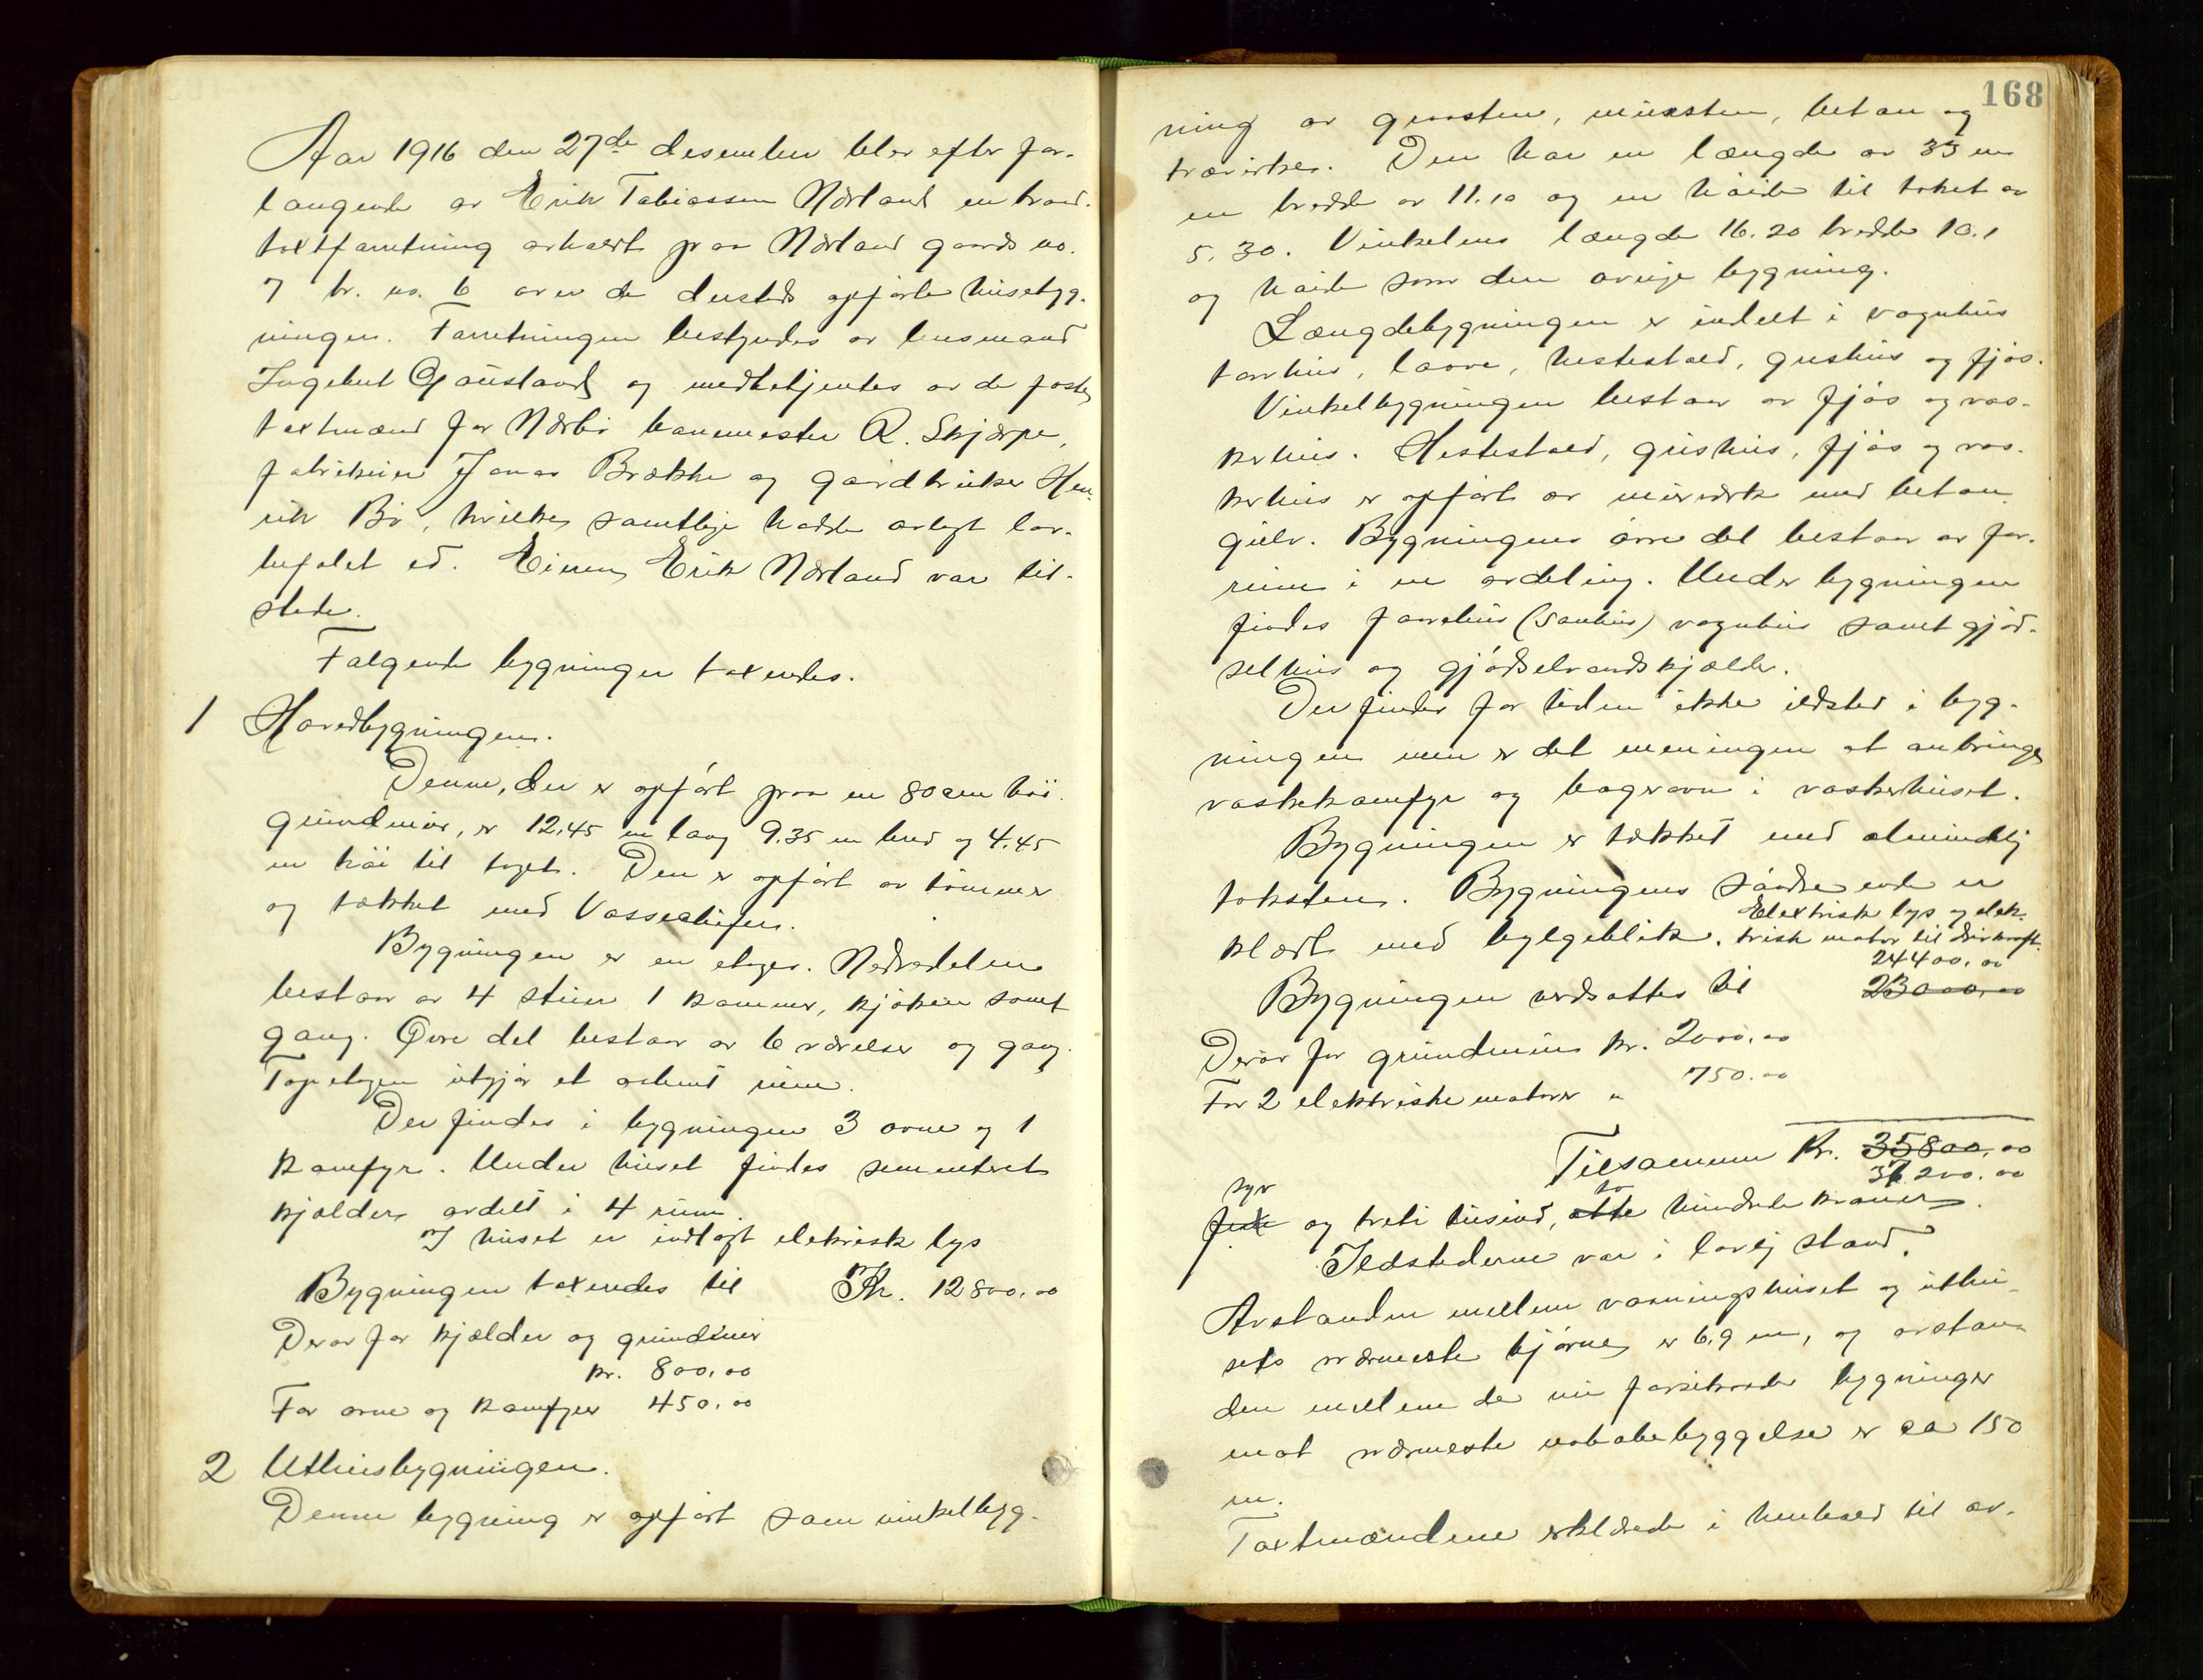 Aar 1916 den 27de desember blev efter for-
langende av Erik Tobiassen Nærland en brand-
taxtforretning avholdt paa Nærland gaards no.
7 br. no. 6 over de dersteds opførte husebyg-
ninger. Forretningen bestyredes av lensmand
Ingebret Gausland og medbetjentes av de faste
taxtmænd for Nærbø banemester R. Skjærpe,
fabrikeier Jonas Brække og gaardbruker Hen-
rik Bø, hvilke samtlige hadde avlagt lov-
befalet ed. Eieren Erik Nærland var til-
stede.
Følgende bygninger taxerdes.
1 Hovedbygningen.
Denne, der er opført paa en 80 cm høi
grundmur, er 12.45 m lang 9.35 m bred og 4.45
m høi til taget. Den er opført av tømmer
og tækket med Vosseskifer.
Bygningen er en etages. Nedredelen
bestaar av 4 stuer 1 kammer, kjøken samt
gang. Øvre del bestaar av 6 værelser og gang.
Topetagen utgjør et aapent rum.
Der findes i bygningen 3 ovne og 1
komfyr. Under huset findes sementert
kjelder avdelt i 4 rum.
I huset er indlagt elekrisk lys
Bygningen taxerdes til Kr. 12800.00
Derav for kjelder og grundmur
kr. 800.00
For ovne og komfyrer 450.00
2 Uthusbygningen.
Denne bygning er opført som vinkelbyg-
168
ning av graasten, mursten, beton og
træverke. Den har en længde av 33 m
en bredde av 11.10 og en høide til taket av
5.30. Vinkelens længde 16.20 bredde 10.1
og høide som den øvrige bygning.
Længdebygningen er indelt i vognhus
torvhus, laave, hestestald, grishus og fjøs.
Vinkelbygningen bestaar av fjøs og vas-
kerhus. Hestestald, grishus, fjøs og vas-
kerhus er opført av murverk med beton
gulv. Bygningens øvre del bestaar av for-
rum i en avdeling. Under bygningen
findes faarehus (sauhus) vognhus samt gjød-
selhus og gjødselvandskjælder.
Der findes for tiden ikke ildsted i byg-
ningen men er det meningen at anbringe
vaskekomfyr og bagerovn i vaskerhuset.
Bygningen er tækket med almindelig
taksten. Bygningens søndre ende er
Elektrisk lys og elek-
klædt med bylgeblik. trisk motor til drivkraft.
24400.00
Bygningen verdsattes til 23000.00
Derav for grundmur kr. 2000.00
For 2 elektriske motorer " 750.00
Tilsammen Kr. 35800.00
37200.00
syv to
fem og treti tusind, otte hundrede kroner.
Ildstederne var i lovlig stand.
Avstanden mellem vaaningshuset og uthu-
sets nærmeste hjørne er 6.9 m, og avstan-
den mellem de nu forsikrede bygninger
mot nærmeste nabobebyggelse er ca 150
m.
Taxtmændene erklærede i henhold til av-